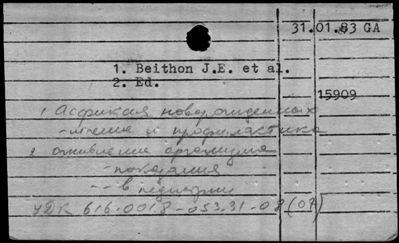 31.01.83 GA
1. Beithon J.E. et al.
2. Ed.
15909
1 Асфиксия новорожденных
- лечение и профилактика
2 оживление организма
- показания
-- в педиатрии
УДК 616-001.8-053.31-08(04)